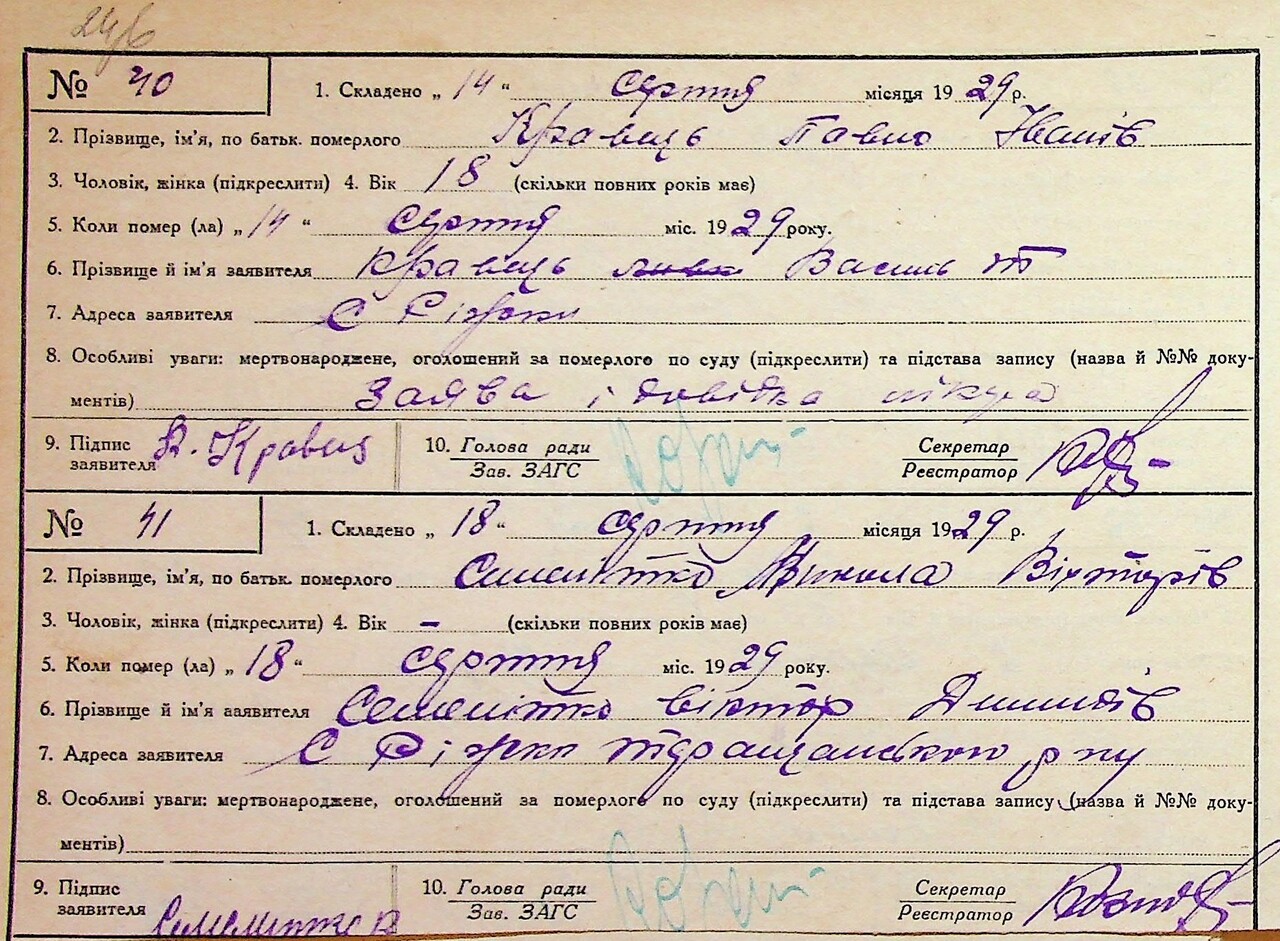 № 40 1. Складено „ 14 “ серпня місяця 19 29 р.
2. Прізвище, ім'я, по батьк. померлого Кравець Павло Іванів
3. Чоловік, жінка (підкреслити) 4. Вік 18 (скільки повних років має)
5. Коли помер (ла) „ 14 “ серпня міс. 19 29 року.
6. Прізвище й ім'я заявителя Кравець Василь
7. Адреса заявителя С Ріжки
8. Особливі уваги: мертвонароджене, оголошений за померлого по суду (підкреслити) та підстава запису (назва й №№ доку-
ментів) Заява і довідка лікаря
9. Підпис заявителя В. Кравець 10. Голова ради Зав. ЗАГС Секретар Реєстратор
№ 41 1. Складено „ 18 “ серпня місяця 19 29 р.
2. Прізвище, ім'я, по батьк. померлого Микола Вікторів
3. Чоловік, жінка (підкреслити) 4. Вік – (скільки повних років має)
5. Коли помер (ла) „ 18 “ серпня міс. 19 29 року.
6. Прізвище й ім'я заявителя Віктор
7. Адреса заявителя С Ріжки Таращанського р ну
8. Особливі уваги: мертвонароджене, оголошений за померлого по суду (підкреслити) та підстава запису (назва й №№ доку-
ментів)
9. Підпис заявителя 10. Голова ради Зав. ЗАГС Секретар Реєстратор